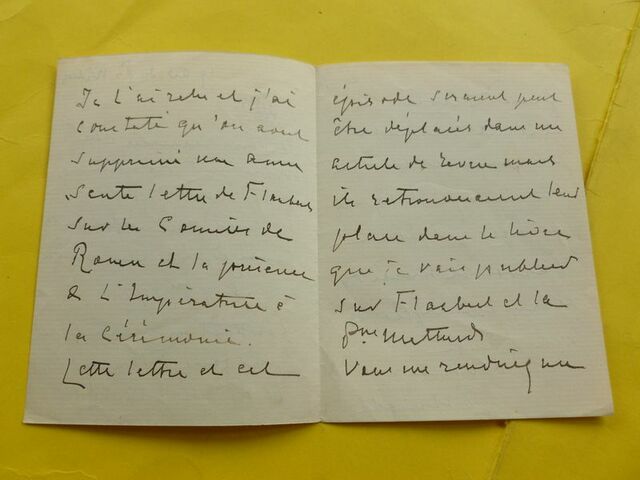 Je l'ai relu et j'ai
constaté qu'on avait
supprimé une amu
sante lettre de Flaubert
sur les Comices de
Rouen et la présence
de L'Impératrice à
la Cérémonie.
Cette lettre et cet
épisode seraient peut
être déplacés dans un
article de revue mais
ils retrouveraient leur
place dans le livre
que je vais publier
sur Flaubert et la
Psse Mathilde
Vous me rendriez un